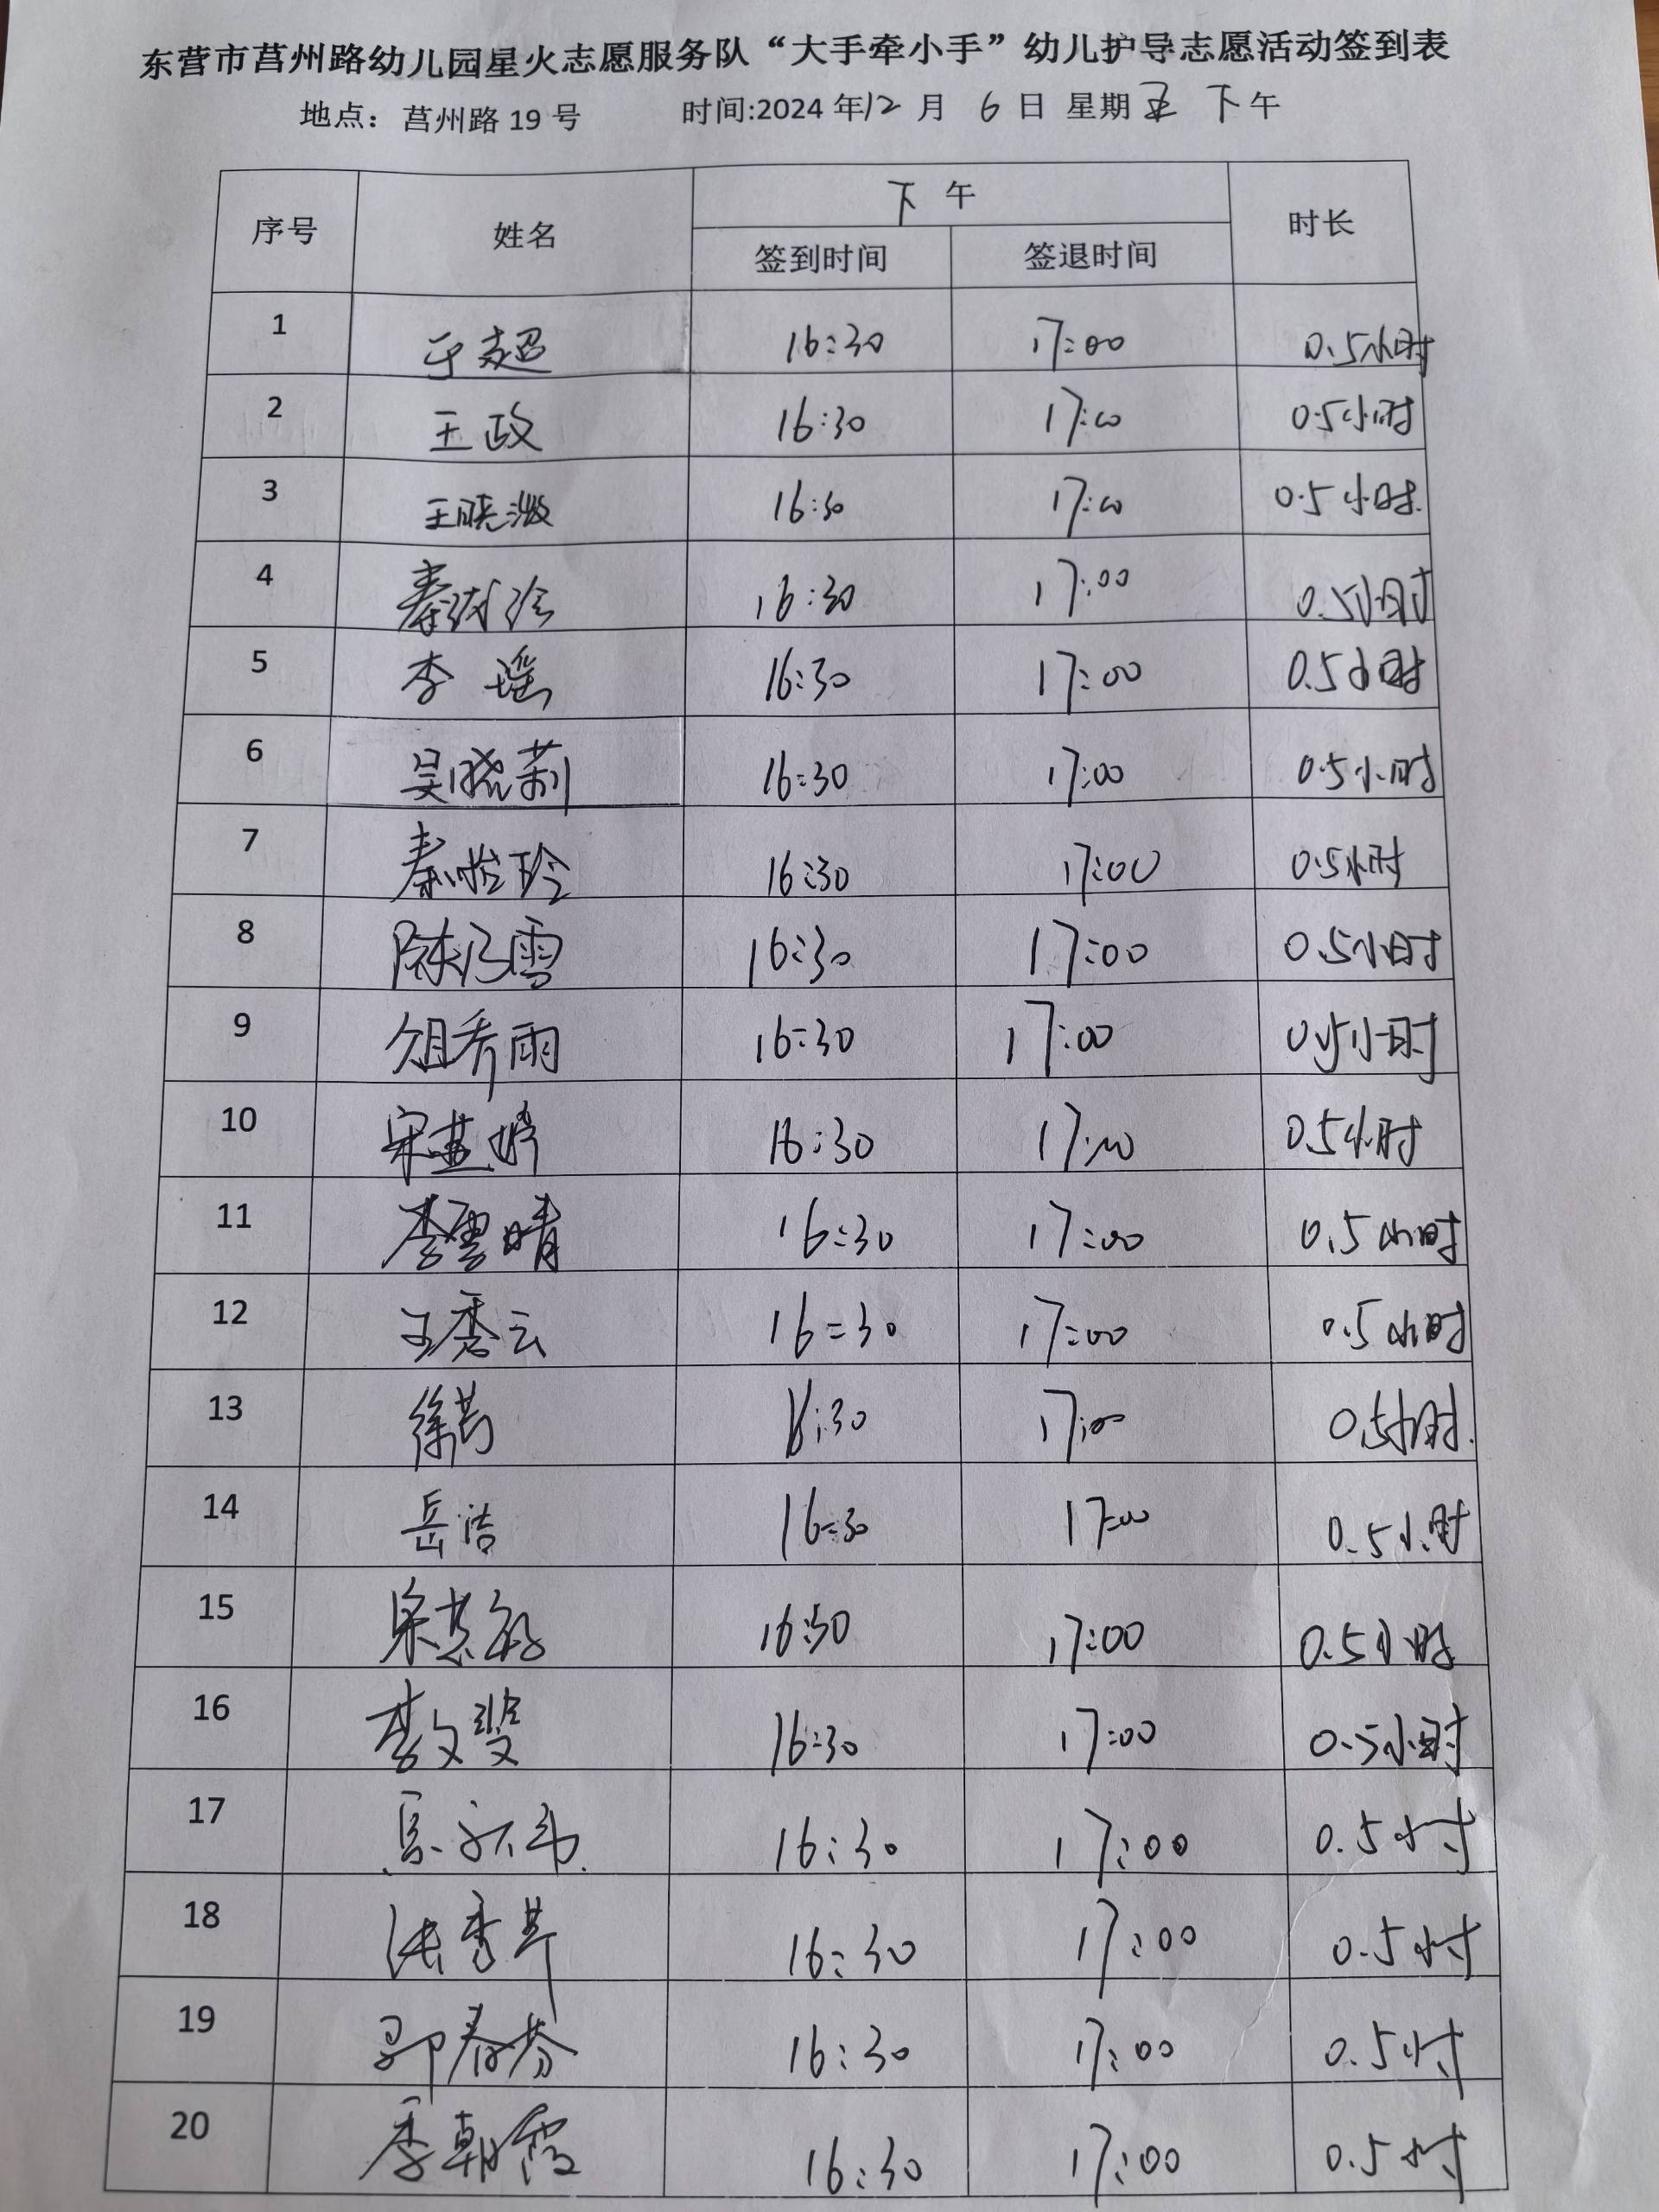 东营市莒州路幼儿园星火志愿服务队“大手牵小手”幼儿护导志愿活动签到表
地点：莒州路19号 时间:2024年12月6日 星期五 下午
序号 姓名 下午 时长
签到时间 签退时间
1 于超 16:30 17:00 0.5小时
2 王政 16:30 17:00 0.5小时
3 王晓微 16:30 17:00 0.5小时
4 秦 16:30 17:00 0.5小时
5 李瑶 16:30 17:00 0.5小时
6 吴晓莉 16:30 17:00 0.5小时
7 秦怡玲 16:30 17:00 0.5小时
8 陈乃雪 16:30 17:00 0.5小时
9 俎秀雨 16:30 17:00 0.5小时
10 宋燕婷 16:30 17:00 0.5小时
11 李雪晴 16:30 17:00 0.5小时
12 王秀云 16:30 17:00 0.5小时
13 徐 16:30 17:00 0.5小时
14 岳洁 16:30 17:00 0.5小时
15 宋 16:30 17:00 0.5小时
16 李文斐 16:30 17:00 0.5小时
17 16:30 17:00 0.5小时
18 张秀芹 16:30 17:00 0.5小时
19 郭春芬 16:30 17:00 0.5小时
20 季朝霞 16:30 17:00 0.5小时